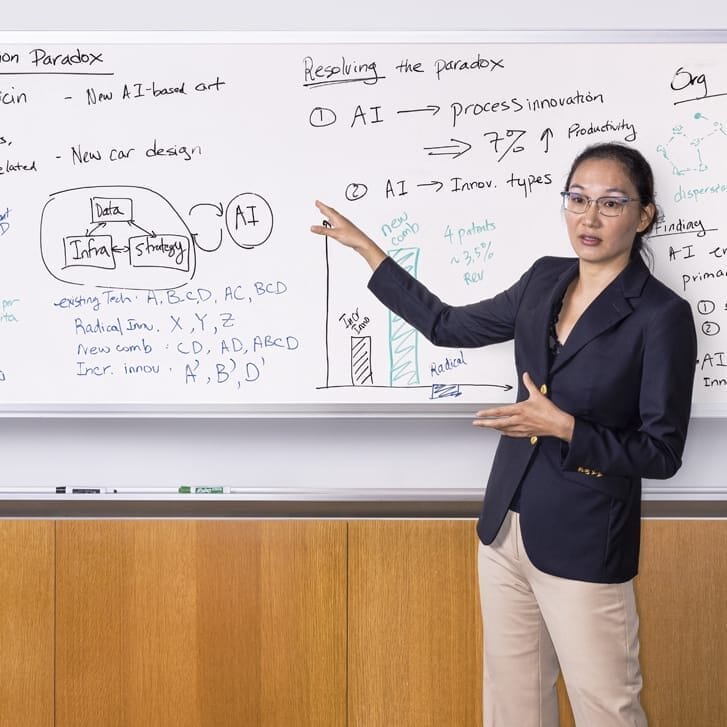 on Paradox
icin - New AI-based art
s,
elated - New car design
Data
Infra Strategy
AI
existing Tech: A, B, CD, AC, BCD
Radical Inn. X, Y, Z
New comb : CD, AD, ABCD
Incr. innov : A', B', D'
Resolving the paradox
① AI → process innovation
⇒ 7% ↑ Productivity
② AI → Innov. types
new
comb
4 patents
~3.5%
Rev
Incr
Inno
Radical
Org
dispersio
Finding
AI
prima
①
②
AI
Inn